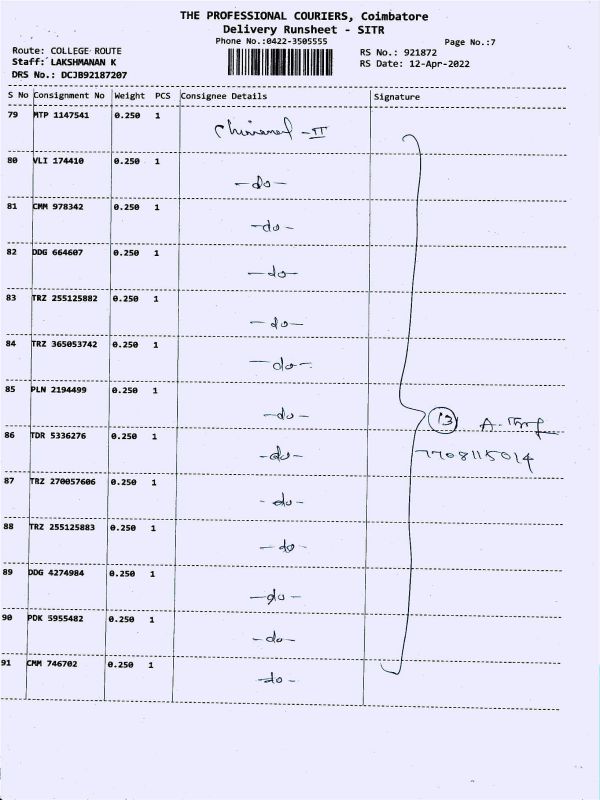 THE PROFESSIONAL COURIERS, Coimbatore
Delivery Runsheet - SITR
Phone No.:0422-3505555
Page No.:7
Route: COLLEGE ROUTE
RS No.: 921872
Staff: LAKSHMANAN K
RS Date: 12-Apr-2022
DRS No.: DCJB92187207
S No Consignment No Weight PCS Consignee Details Signature
79 MTP 1147541 0.250 1
80 VLI 174410 0.250 1 -do-
81 CMM 978342 0.250 1 -do-
82 DDG 664607 0.250 1 -do-
83 TRZ 255125882 0.250 1 -do-
84 TRZ 365053742 0.250 1 -do-
85 PLN 2194499 0.250 1 -do-
13 A.
86 TDR 5336276 0.250 1 -do- 7708115014
87 TRZ 270057606 0.250 1 -do-
88 TRZ 255125883 0.250 1 -do-
89 DDG 4274984 0.250 1 -do-
90 PDK 5955482 0.250 1 -do-
91 CMM 746702 0.250 1 -do-